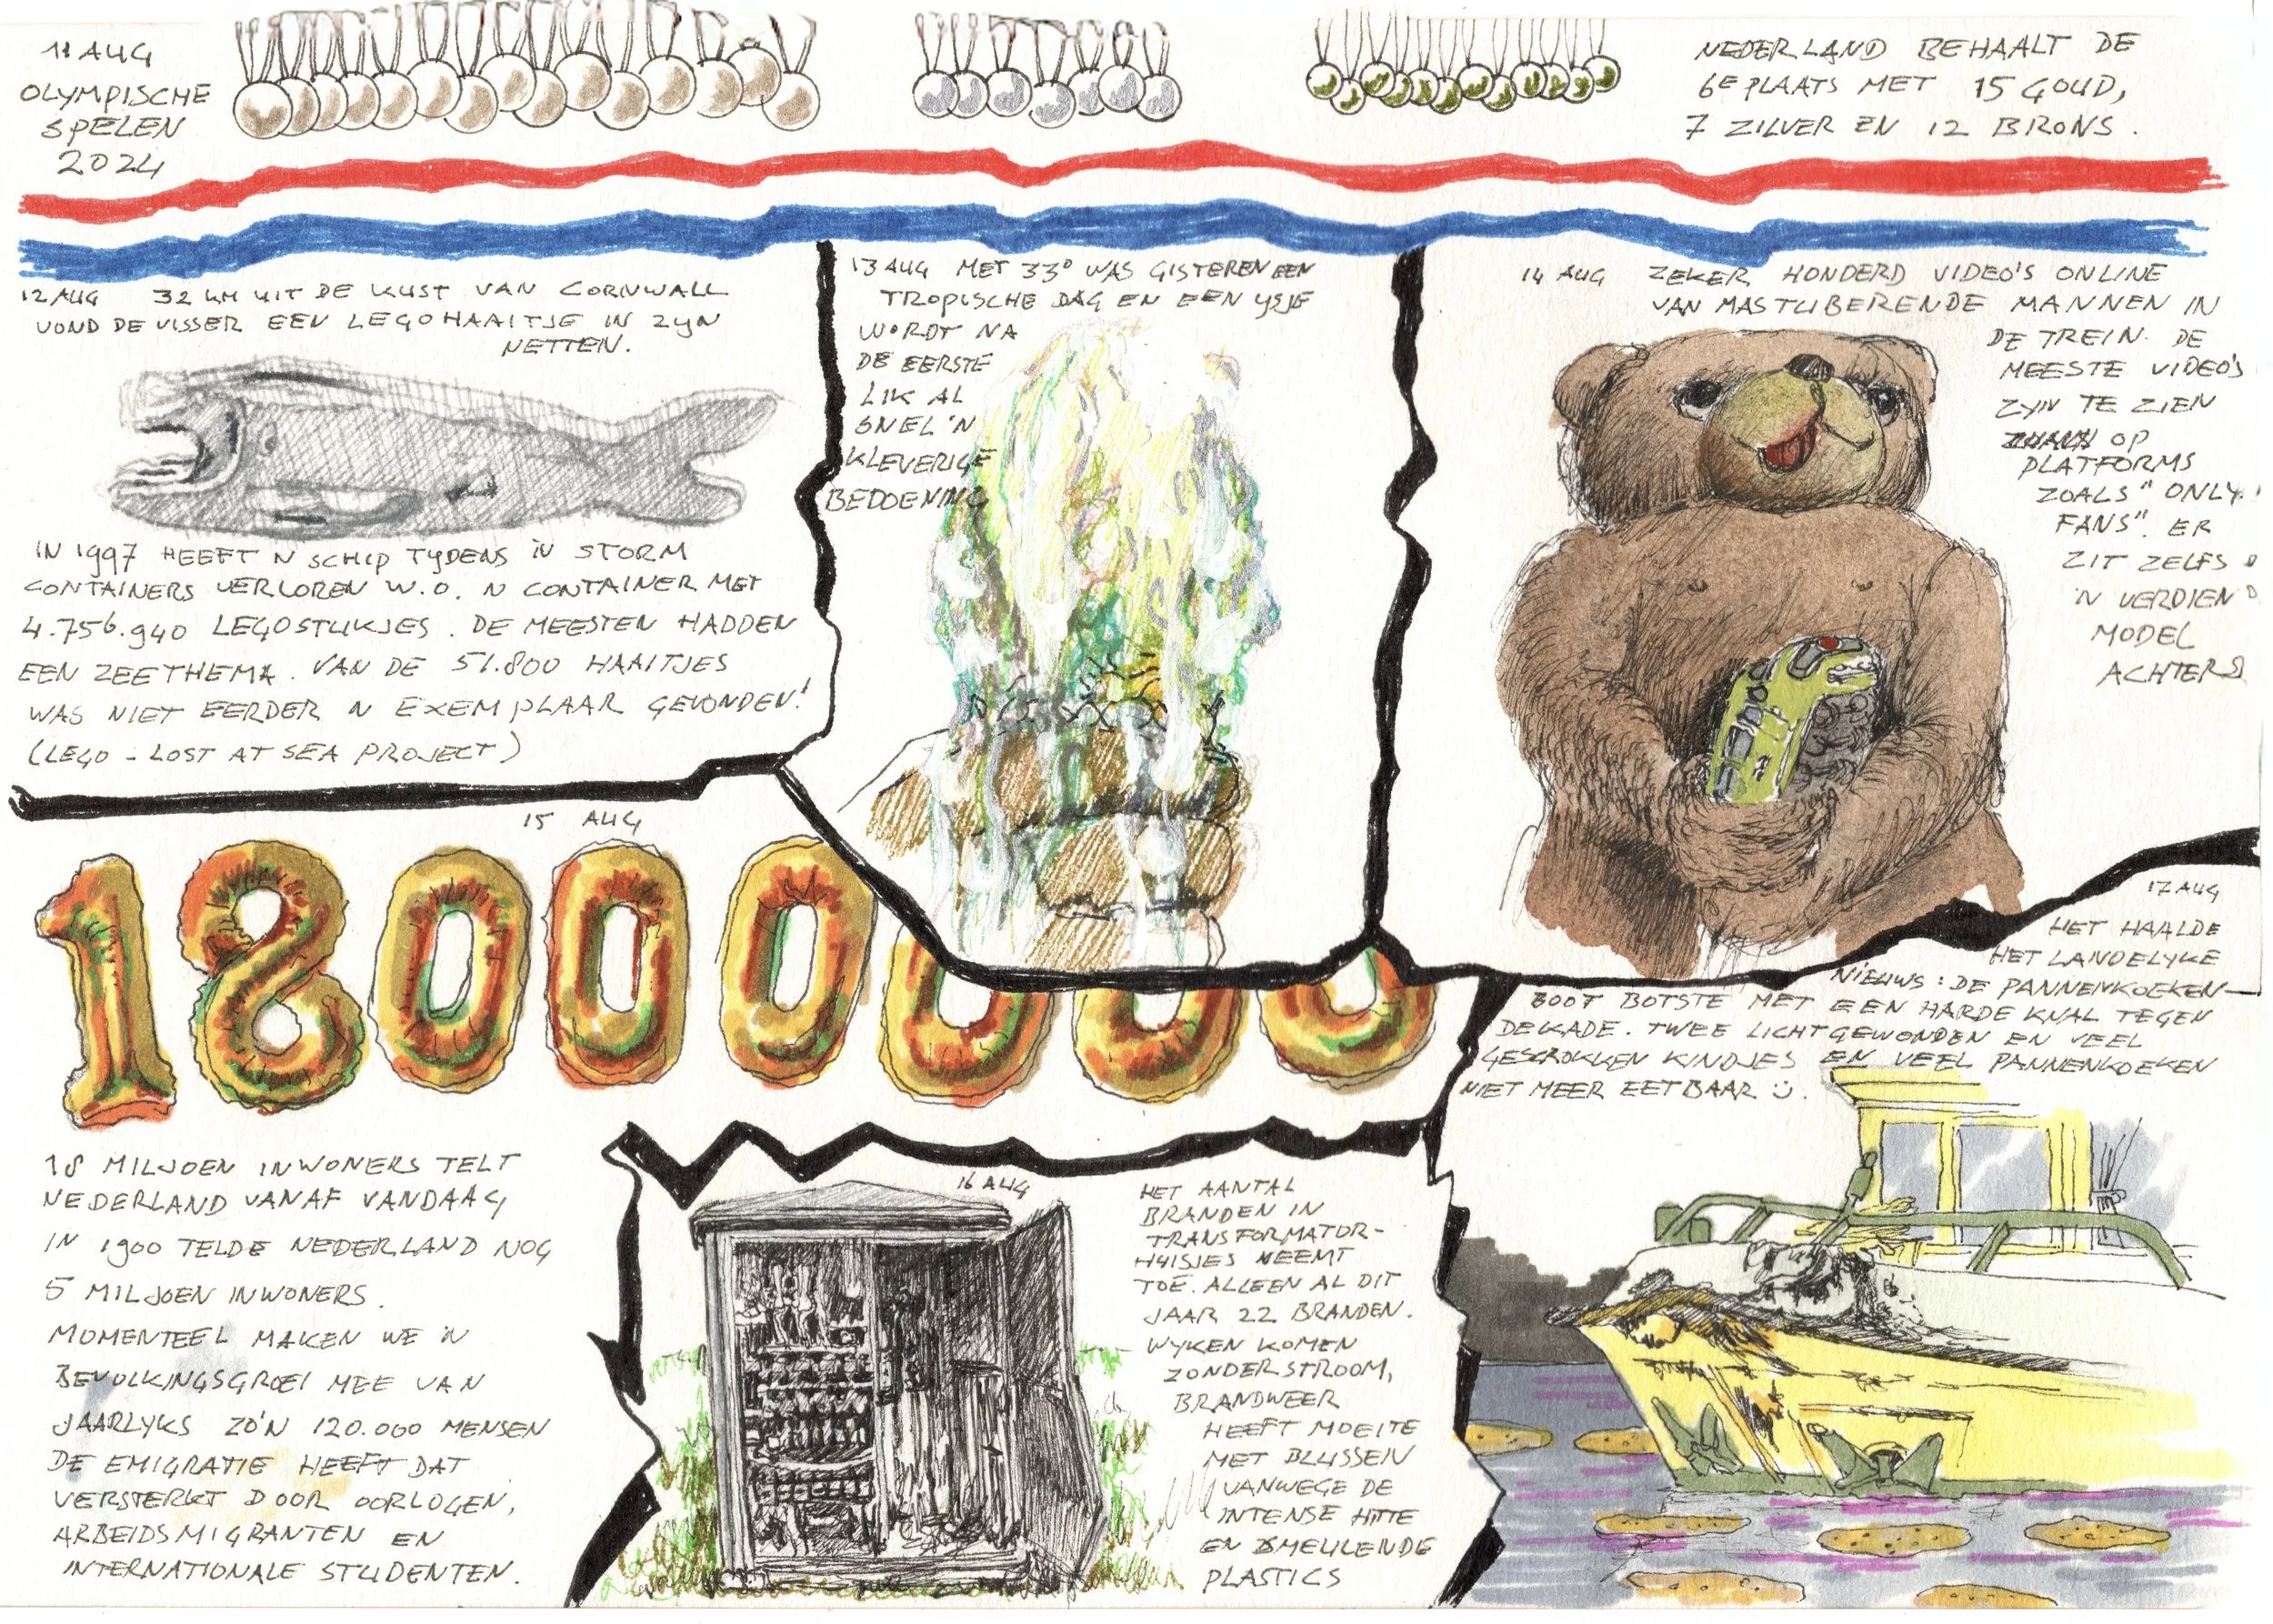 11 AUG
OLYMPISCHE
SPELEN
2024
NEDERLAND BEHAALT DE
6E PLAATS MET 15 GOUD,
7 ZILVER EN 12 BRONS.
12 AUG 32 KM UIT DE KUST VAN CORNWALL
VOND DE VISSER EEN LEGOHAAITJE IN ZYN
NETTEN.
IN 1997 HEEFT 'N SCHIP TYDENS 'N STORM
CONTAINERS VERLOREN W.O. 'N CONTAINER MET
4.756.940 LEGOSTUKJES. DE MEESTEN HADDEN
EEN ZEETHEMA. VAN DE 51.800 HAAITJES
WAS NIET EERDER 'N EXEMPLAAR GEVONDEN!
(LEGO - LOST AT SEA PROJECT)
13 AUG MET 33° WAS GISTEREN EEN
TROPISCHE DAG EN EEN YSJE
WORDT NA
DE EERSTE
LIK AL
SNEL 'N
KLEVERIGE
BEDOENING
14 AUG ZEKER HONDERD VIDEO'S ONLINE
VAN MASTUBERENDE MANNEN IN
DE TREIN. DE
MEESTE VIDEO'S
ZYN TE ZIEN
OP
PLATFORMS
ZOALS "ONLY
FANS". ER
ZIT ZELFS
'N VERDIEN
MODEL
ACHTER
15 AUG
18000000
18 MILJOEN INWONERS TELT
NEDERLAND VANAF VANDAAG
IN 1900 TELDE NEDERLAND NOG
5 MILJOEN INWONERS.
MOMENTEEL MAKEN WE 'N
BEVOLKINGSGROEI MEE VAN
JAARLYKS ZO'N 120.000 MENSEN
DE EMIGRATIE HEEFT DAT
VERSTERKT DOOR OORLOGEN,
ARBEIDSMIGRANTEN EN
INTERNATIONALE STUDENTEN.
16 AUG
HET AANTAL
BRANDEN IN
TRANSFORMATOR-
HUISJES NEEMT
TOE. ALLEEN AL DIT
JAAR 22 BRANDEN.
WYKEN KOMEN
ZONDER STROOM,
BRANDWEER
HEEFT MOEITE
MET BLUSSEN
VANWEGE DE
INTENSE HITTE
EN SMEULENDE
PLASTICS
17 AUG
HET HAALDE
HET LANDELYKE
NIEUWS: DE PANNENKOEKEN-
BOOT BOTSTE MET EEN HARDE KNAL TEGEN
DE KADE. TWEE LICHTGEWONDEN EN VEEL
GESCHROKKEN KINDJES EN VEEL PANNENKOEKEN
NIET MEER EETBAAR :).